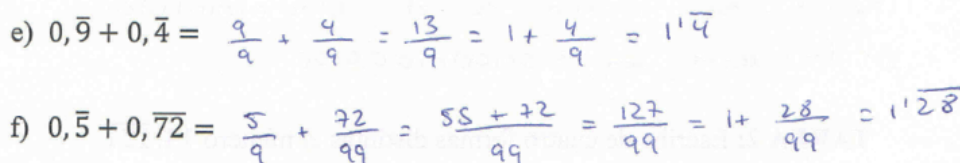 e) 0,9̅ + 0,4̅ = 9/9 + 4/9 = 13/9 = 1 + 4/9 = 1'4̅
f) 0,5̅ + 0,7̅2̅ = 5/9 + 72/99 = 55 + 72/99 = 127/99 = 1 + 28/99 = 1'2̅8̅